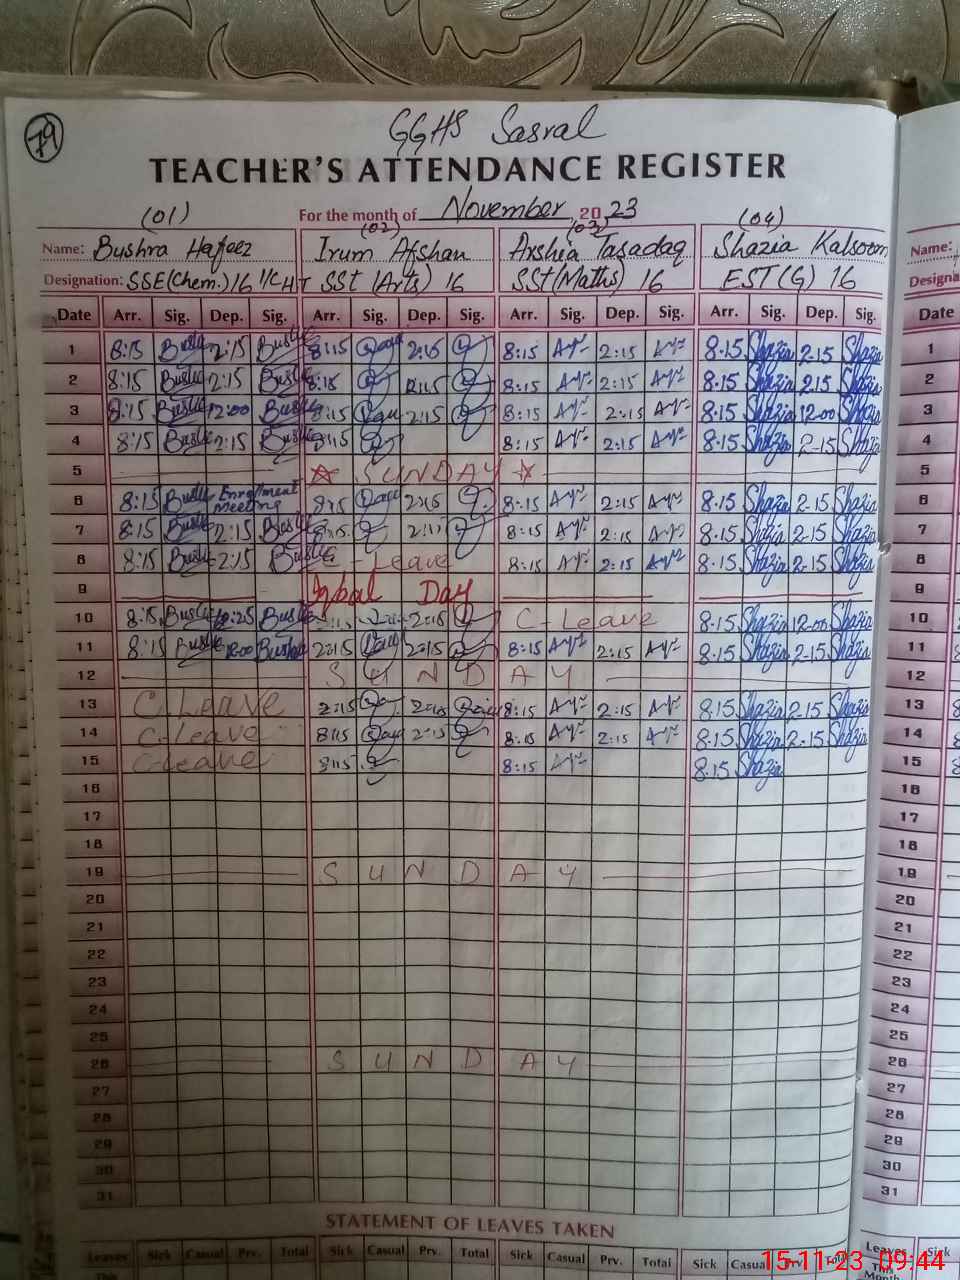 79
GGHS Sasral
TEACHER'S ATTENDANCE REGISTER
For the month of November 2023
(01) (02) (03) (04)
Name: Bushra Hafeez Irum Afshan Arshia Tasadaq Shazia Kalsoom Name:
Designation: SSE(Chem.)16 I/C H T SST (Arts) 16 SST(Maths) 16 EST(G) 16 Designa
Date Arr. Sig. Dep. Sig. Arr. Sig. Dep. Sig. Arr. Sig. Dep. Sig. Arr. Sig. Dep. Sig. Date Arr
1 8:15 2:15 8:15 2:15 8:15 2:15 8:15 Shazia 2:15 Shazia 1
2 8:15 2:15 8:15 2:15 8:15 2:15 8:15 Shazia 2:15 Shazia 2
3 8:15 12:00 8:15 2:15 8:15 2:15 8:15 Shazia 12:00 Shazia 3
4 8:15 2:15 8:15 8:15 2:15 8:15 Shazia 2-15 Shazia 4
5 SUNDAY 5
6 8:15 Enrollment Meeting 8:15 8:15 2:15 8:15 Shazia 2-15 Shazia 6
7 8:15 2:15 8:15 2:15 8:15 Shazia 2-15 Shazia 7
8 8:15 2:15 C-Leave 8:15 2:15 8:15 Shazia 2-15 Shazia 8
9 Iqbal Day 9
10 8:15 2:15 C-Leave 8:15 Shazia 12:00 Shazia 10
11 8:15 2:15 2:15 8:15 2:15 8:15 Shazia 2-15 Shazia 11
12 SUNDAY 12
13 C-Leave 2:15 8:15 2:15 8:15 Shazia 2-15 Shazia 13
14 C-Leave 8:15 2:15 8:15 2:15 8:15 Shazia 2-15 Shazia 14
15 C-Leave 8:15 8:15 8:15 Shazia 15
16 16
17 17
18 18
19 SUNDAY 19
20 20
21 21
22 22
23 23
24 24
25 25
26 SUNDAY 26
27 27
28 28
29 29
30 30
31 31
STATEMENT OF LEAVES TAKEN
Leaves Sick Casual Prv. Total Sick Casual Prv. Total Sick Casual Prv. Total Sick Casual Prv Total Leaves Sick
This This
Month
15-11-23 09:44